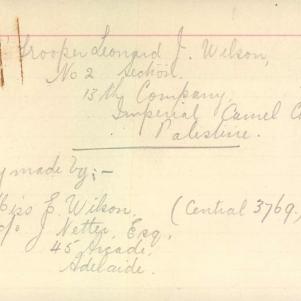 Trooper Leonard J. Wilson,
No 2 Section.
13th Company
Imperial Camel C
Palestine.
y made by;-
iss E. Wilson. (Central 3769.
c/o J Netter, Esq,
45 Arcade,
Adelaide.